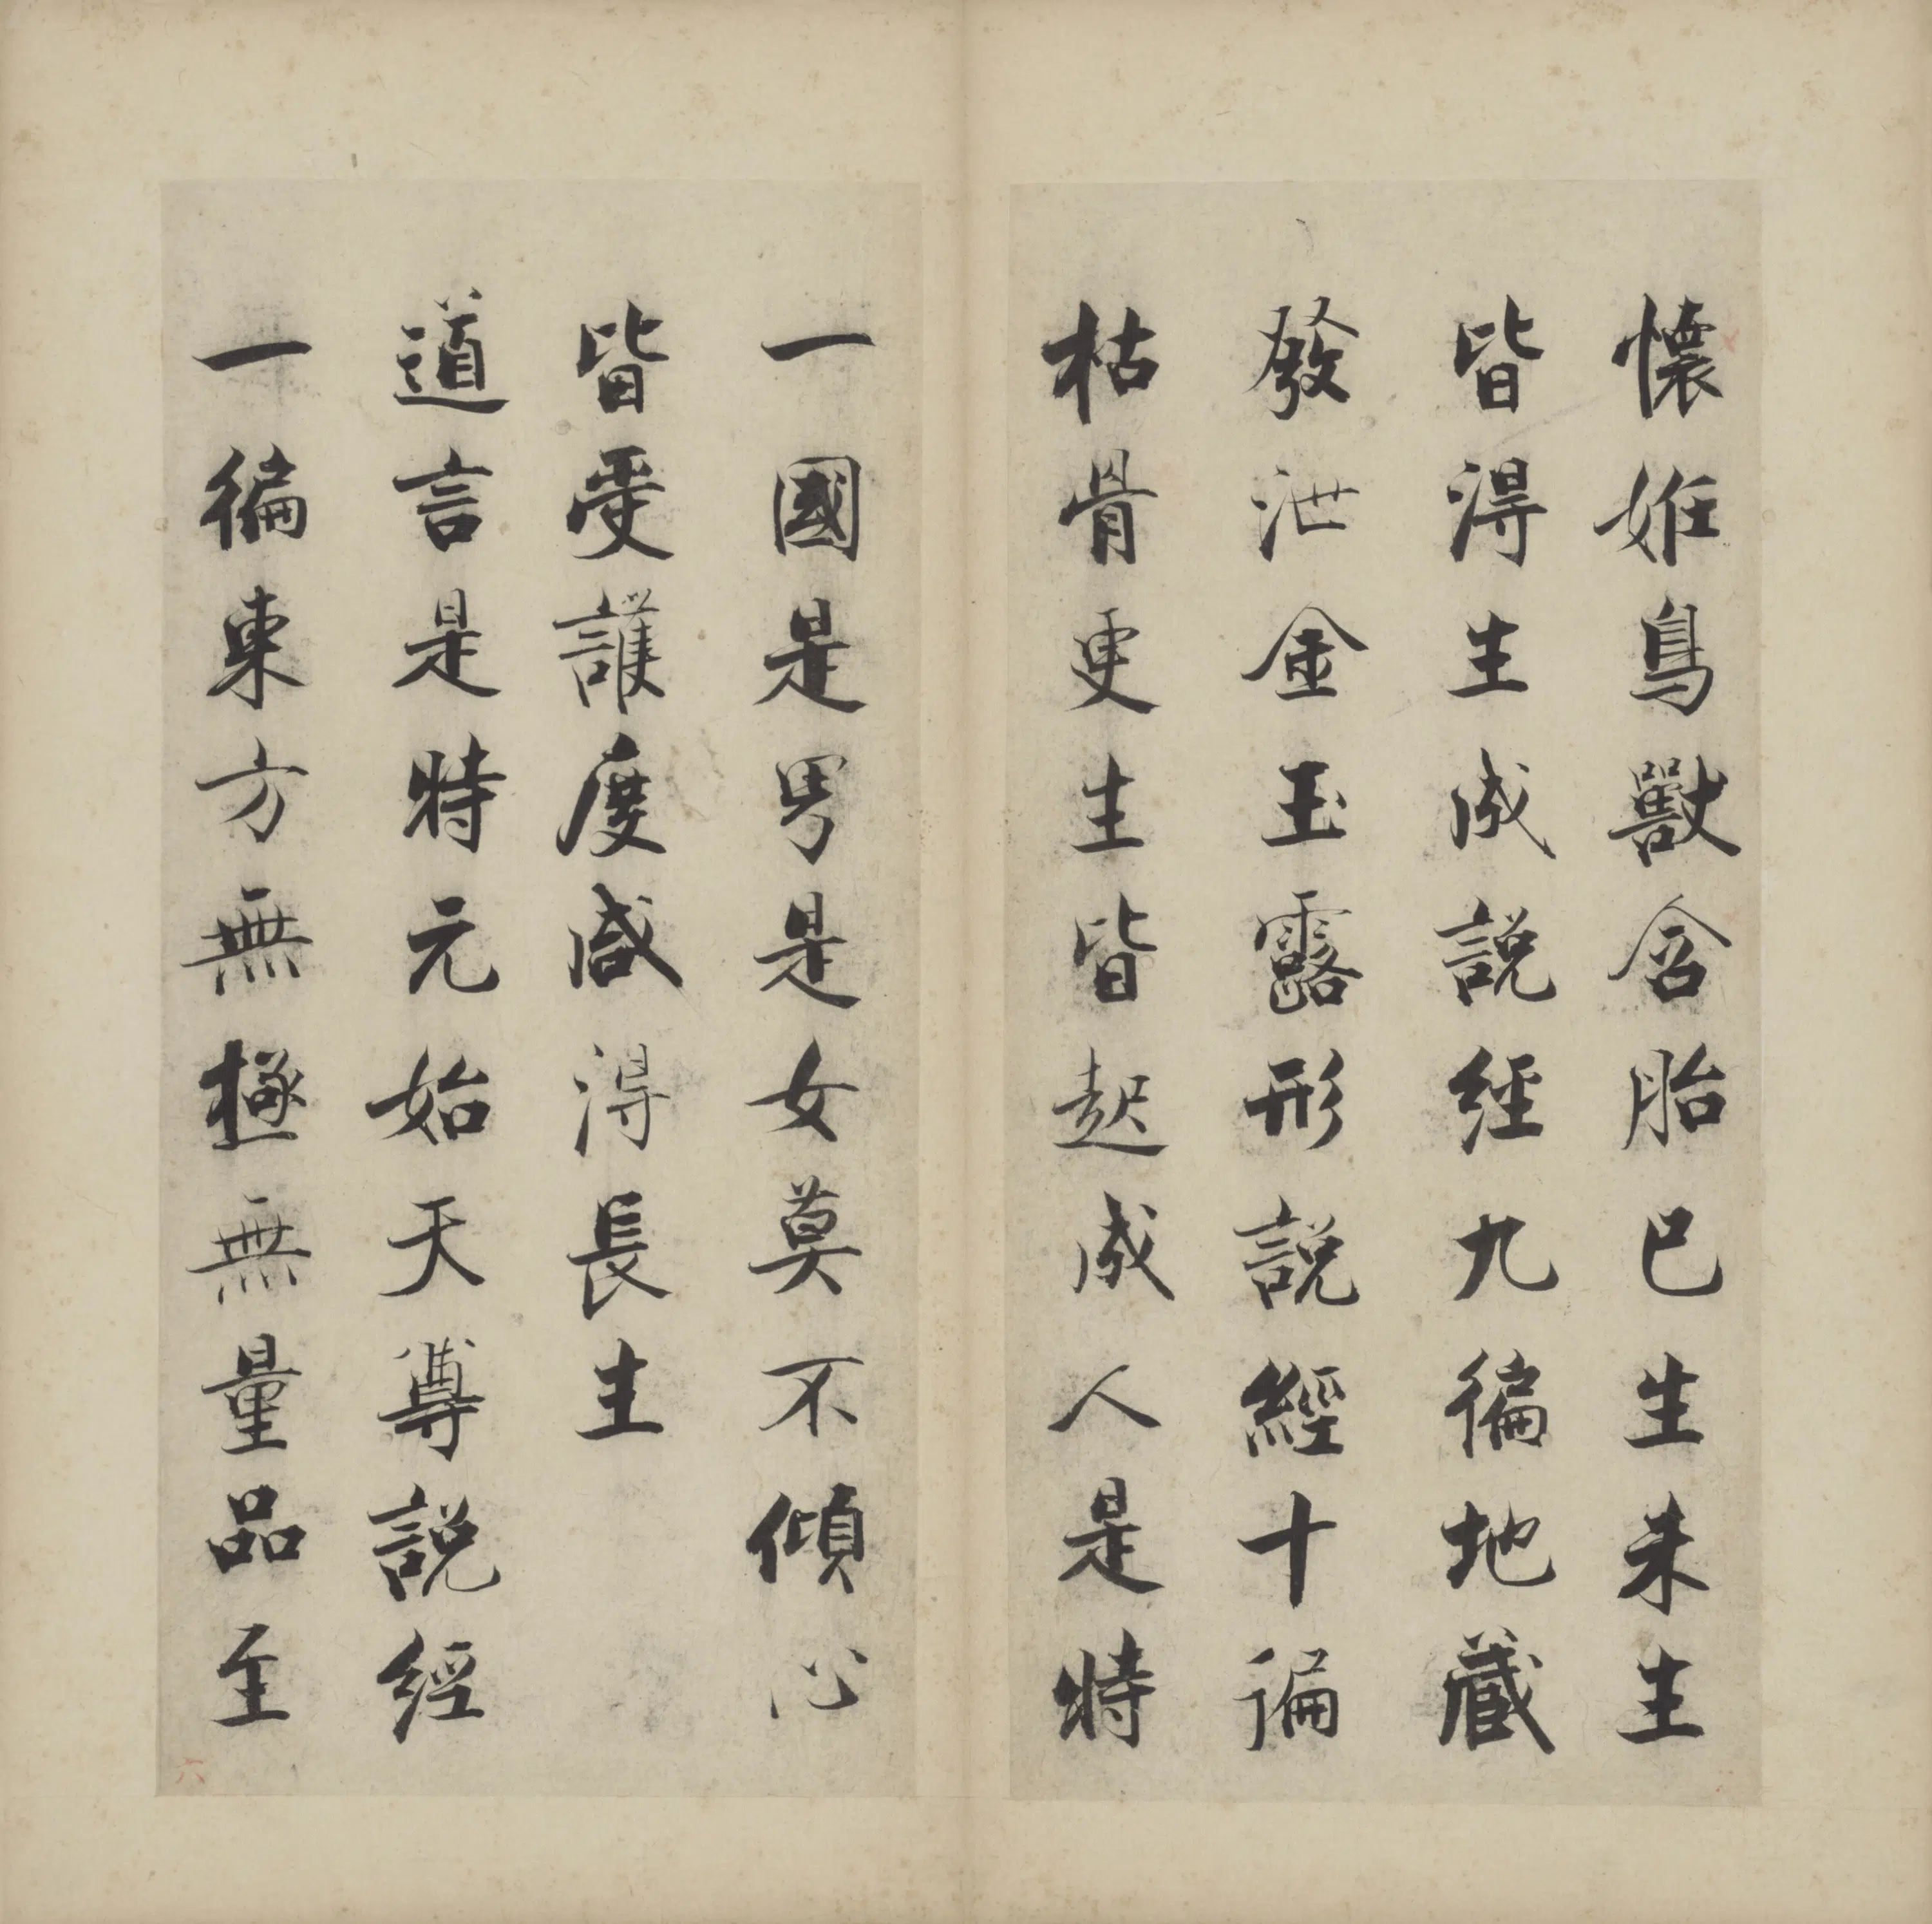 懷妊鳥獸含胎已生未生
皆得生成說經九徧地藏
發泄金玉露形說經十遍
枯骨更生皆起成人是時
一國是男是女莫不傾心
皆受護度咸得長生
道言是時元始天尊說經
一徧東方無極無量品至
六